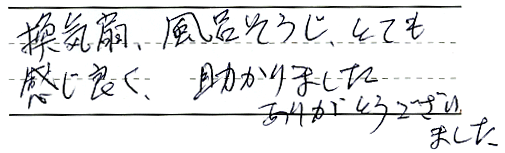 換気扇、風呂そうじ、とても
感じ良く、助かりました
ありがとうござい
ました